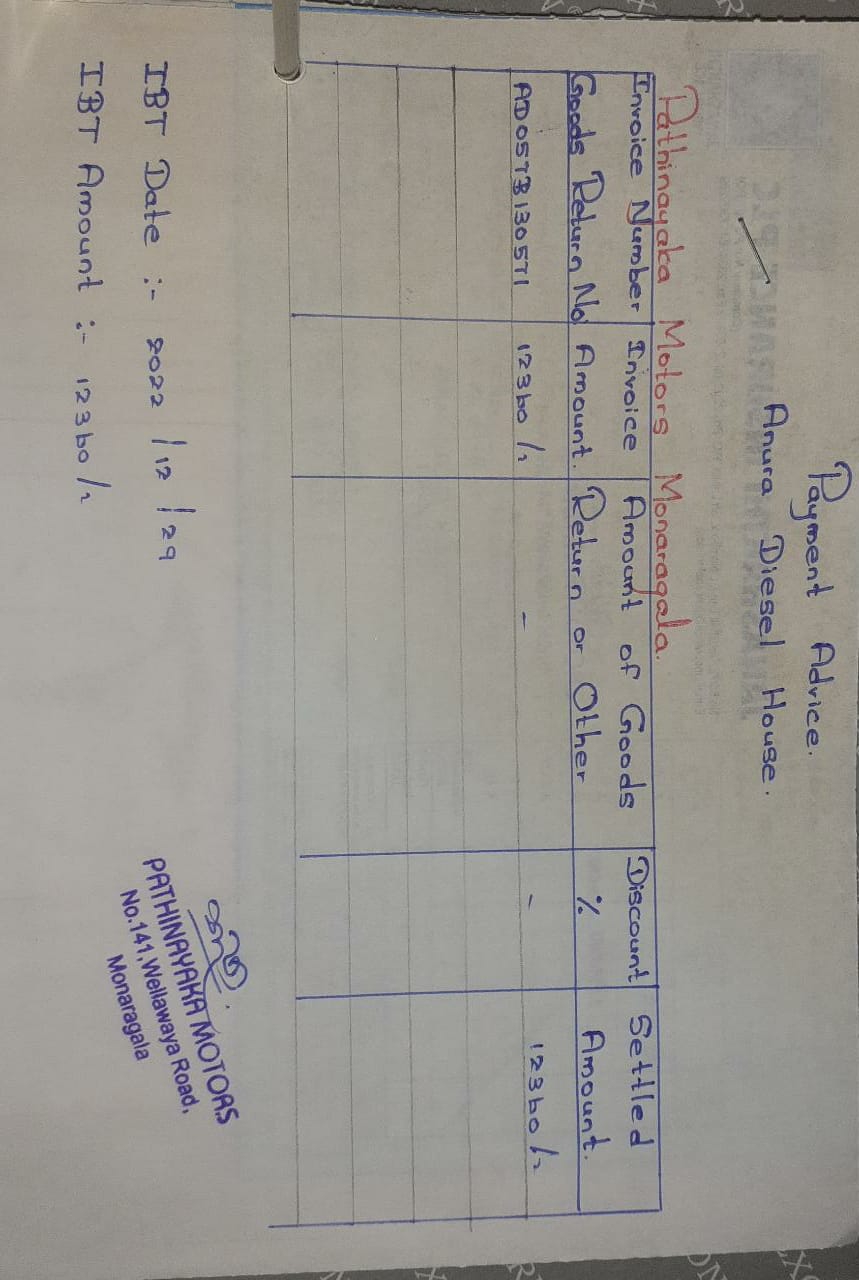 Payment Advice.
Anura Diesel House.
Pathinayaka Motors Monaragala.
Invoice Number Invoice Amount of Goods Discount Settled
Goods Return No Amount. Return or Other % Amount.
AD05TB130571 12360/= - - 12360/=
IBT Date :- 2022/12/29
IBT Amount :- 12360/=
PATHINAYAKA MOTORS
No.141, Wellawaya Road,
Monaragala